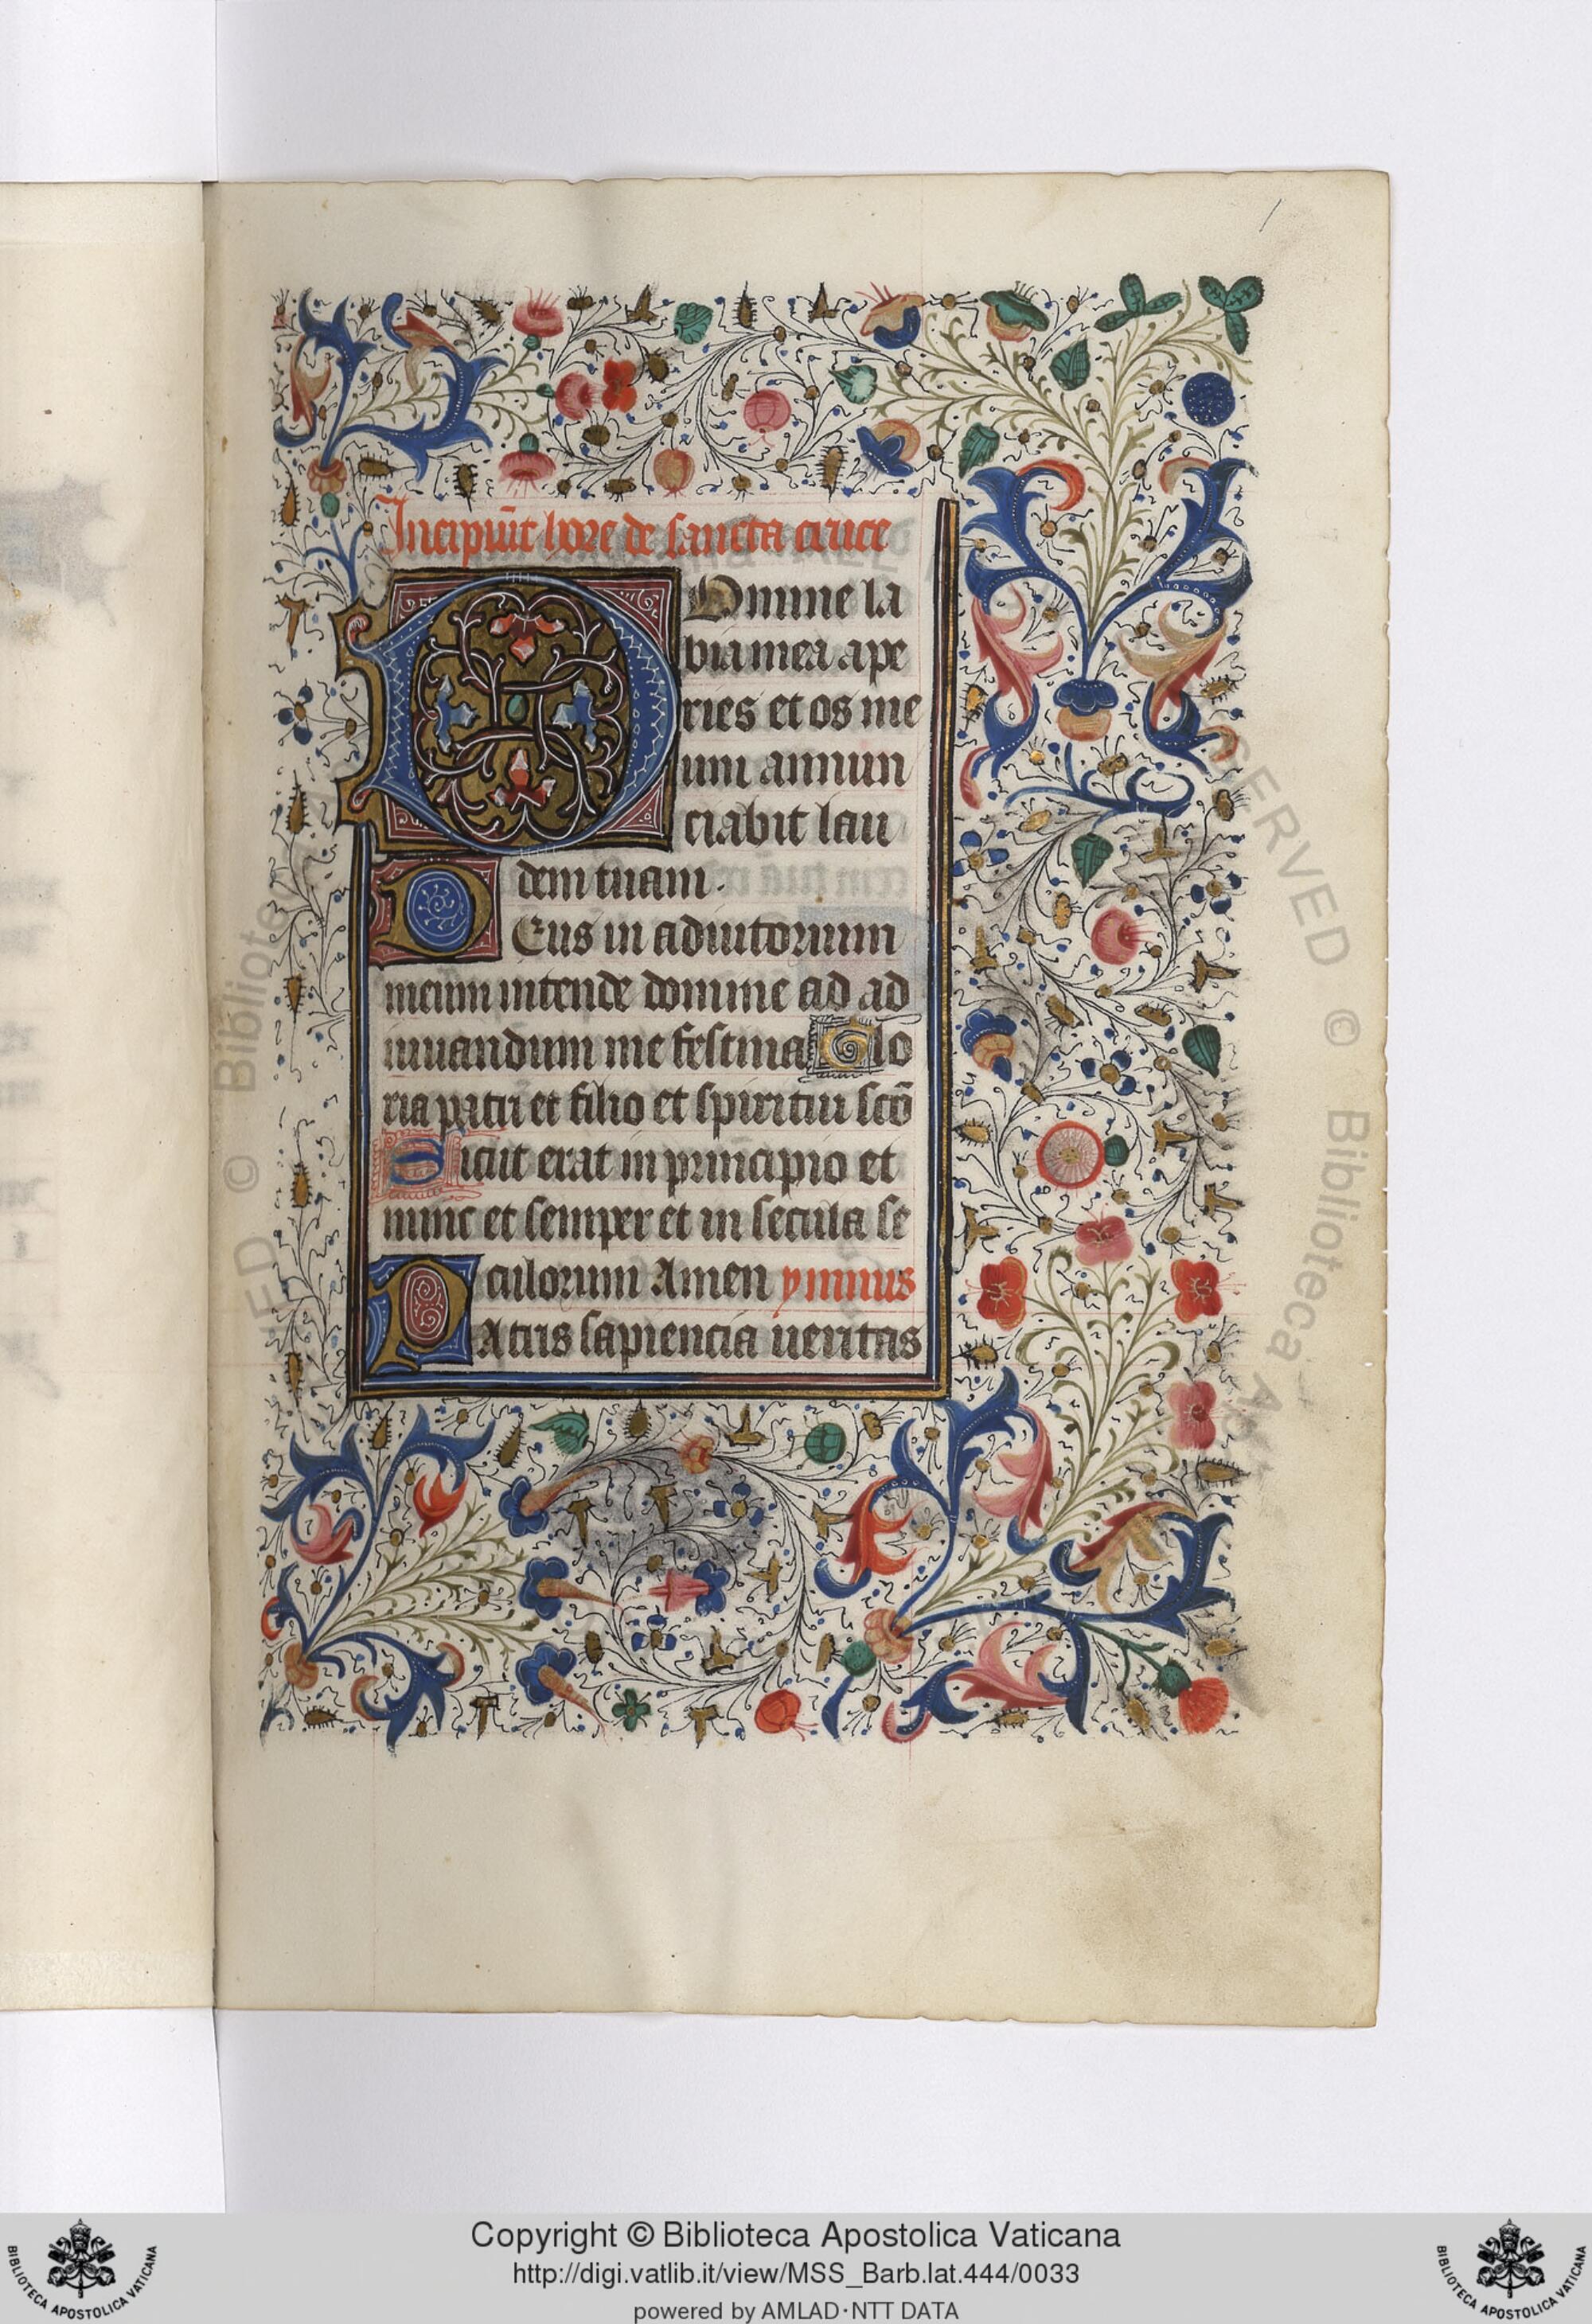 Incipiūt hore de sancta cruce
Domine la
bia mea ape
ries et os me
um annun
ciabit lau
dem tuam.
Deus in adiutorium
meum intende domine ad ad
iuuandum me festina Glo
ria patri et filio et spiritui scō
Sicut erat in principio et
nunc et semper et in secula se
culorum Amen ymnus
PAtris sapiencia ueritas
Copyright © Biblioteca Apostolica Vaticana
http://digi.vatlib.it/view/MSS_Barb.lat.444/0033
powered by AMLAD·NTT DATA
BIBLIOTECA APOSTOLICA VATICANA
BIBLIOTECA APOSTOLICA VATICANA